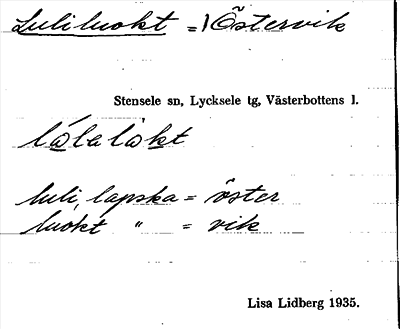 Luliluokt = Östervik
Stensele sn, Lycksele tg, Västerbottens l.
lålalåkt
luli, lapska = öster
luokt " = vik
Lisa Lidberg 1935.